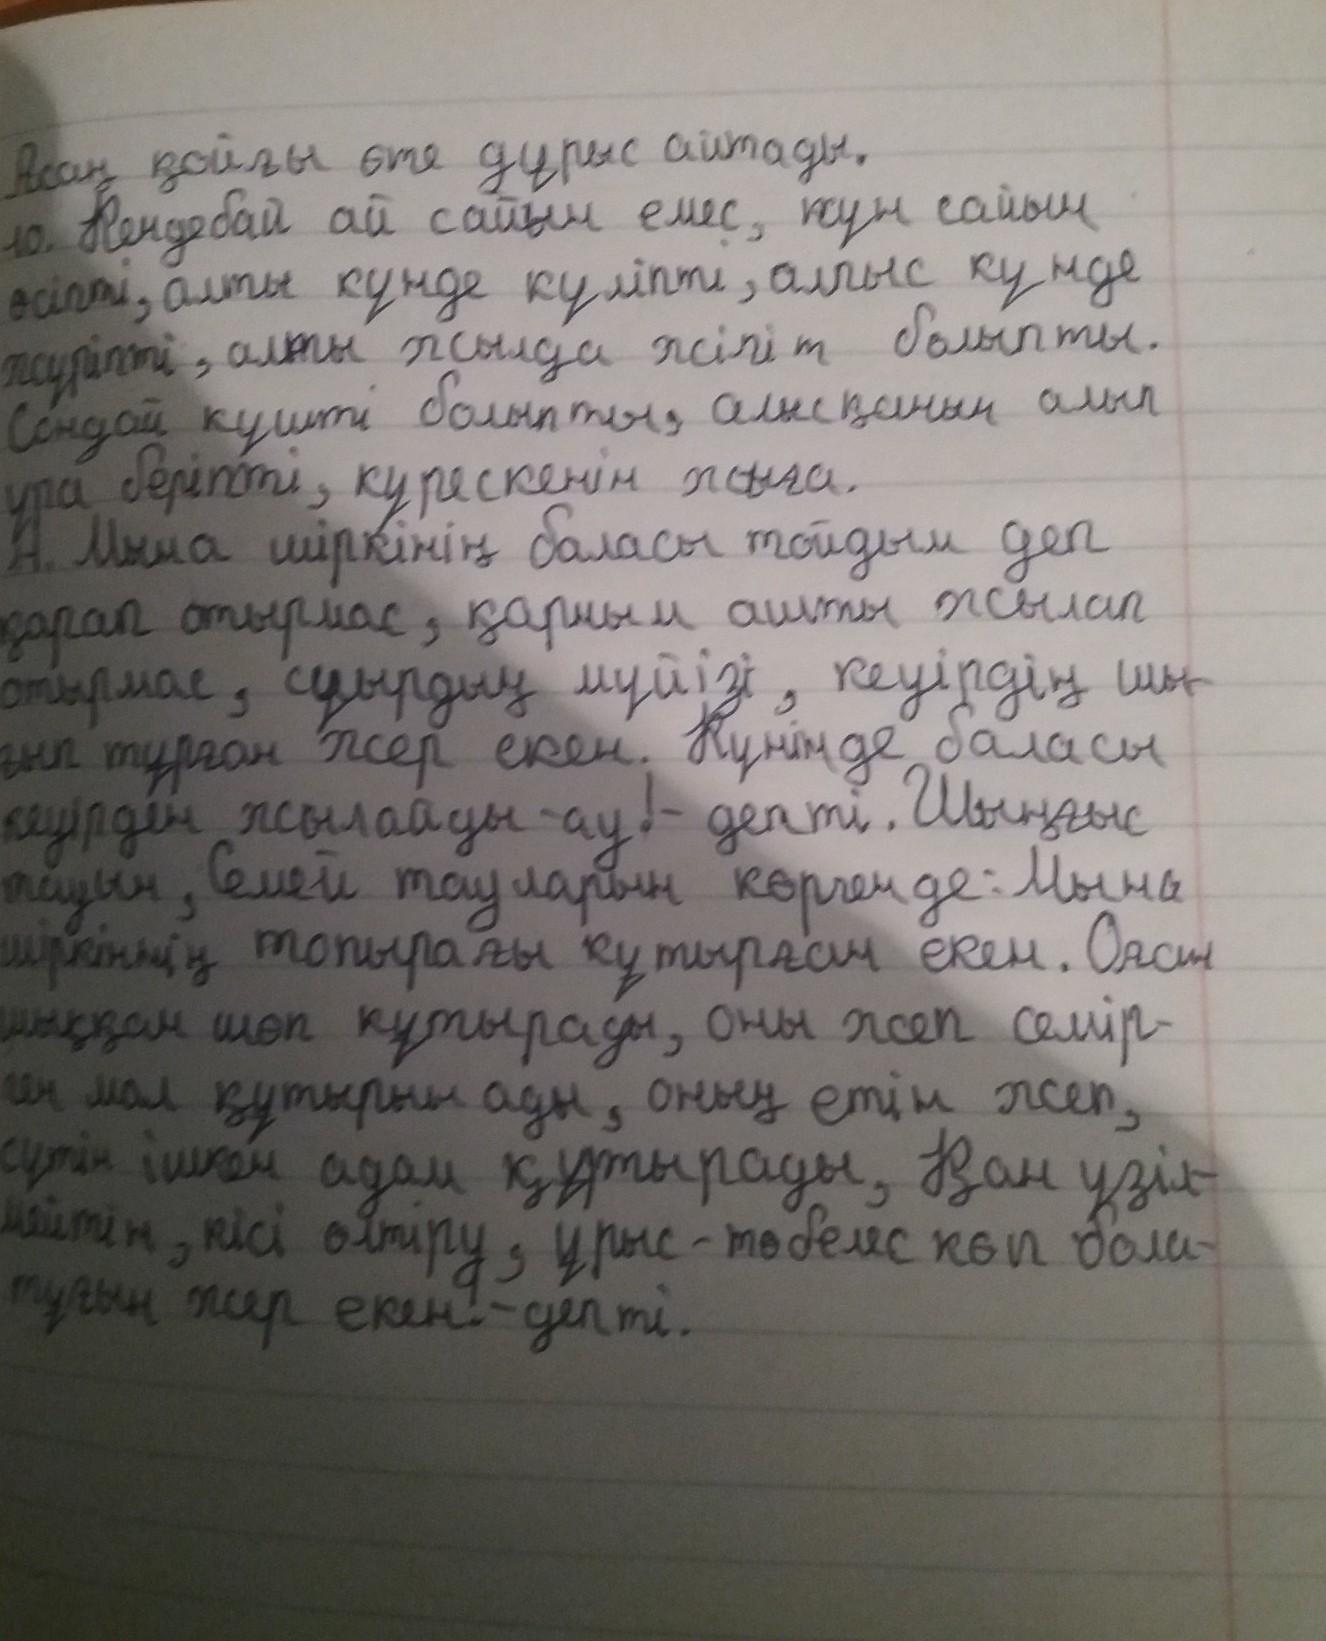 Асан қойғы өте дұрыс айтады.
10. Кендебай ай сайын емес, күн сайын
өсіпті, алты күнде күліпті, алпыс күнде
жүріпті, алты жылда жігіт болыпты.
Сондай күшті болыпты, алысқанын алып
ұра беріпті, күрескенін жыға.
Мына шіркінің баласы тойдым деп
қарап отырмас, қарным ашты жылап
отырмас, сұырдың мүйізі, кеуірдің шы-
ғып тұрған жер екен. Күнінде баласы
кеуірден жылайды-ау!- депті. Шыңғыс
тауын, Семей тауларын көргенде: Мына
шіркіннің топырағы құтырған екен. Осы
шыққан шөп құтырады, оны жеп семір-
ген мал құтырын ады, оның етін жеп,
сүтін ішкен адам құтырады, Қан үзіл-
мейтін, кісі өлтіру, ұрыс-төбелес көп бола-
тұғын жер екен!-депті.